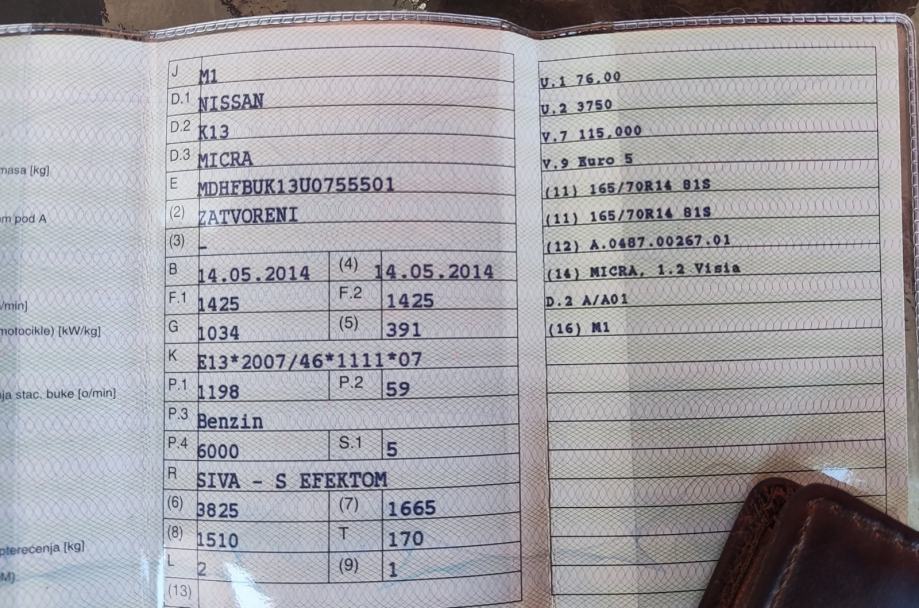 masa [kg]
m pod A
/min]
motocikle) [kW/kg]
ja stac. buke [o/min]
pterećenja [kg]
M)
J M1
D.1 NISSAN
D.2 K13
D.3 MICRA
E MDHFBUK13U0755501
(2) ZATVORENI
(3) –
B 14.05.2014 (4) 14.05.2014
F.1 1425 F.2 1425
G 1034 (5) 391
K E13*2007/46*1111*07
P.1 1198 P.2 59
P.3 Benzin
P.4 6000 S.1 5
R SIVA - S EFEKTOM
(6) 3825 (7) 1665
(8) 1510 T 170
L 2 (9) 1
(13)
U.1 76,00
U.2 3750
V.7 115,000
V.9 Euro 5
(11) 165/70R14 81S
(11) 165/70R14 81S
(12) A.0487.00267.01
(14) MICRA, 1.2 Visia
D.2 A/A01
(16) M1